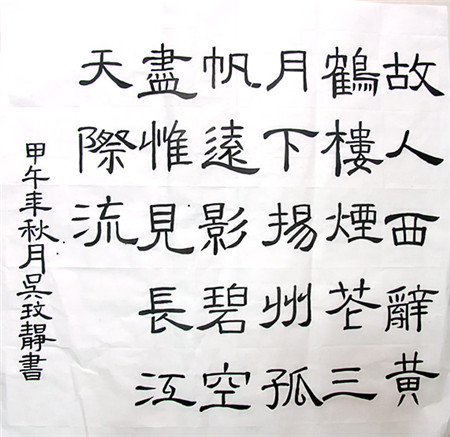 故人西辭黃
鶴樓煙花三
月下揚州孤
帆遠影碧空
盡惟見長江
天際流
甲午年秋月吳玫靜書